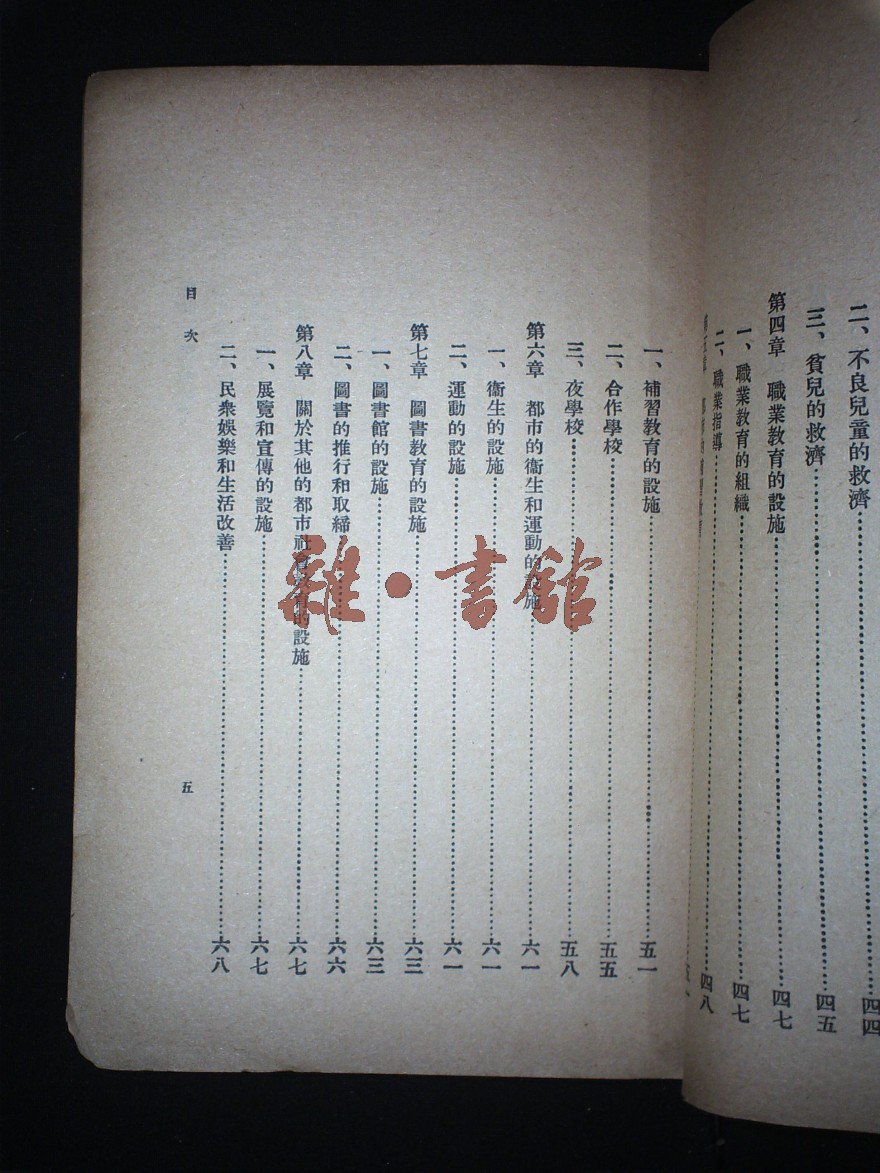 二、不良兒童的救濟……四四
三、貧兒的救濟……四五
第四章 職業教育的設施……四七
一、職業教育的組織……四七
二、職業指導……四八
一、補習教育的設施……五一
二、合作學校……五五
三、夜學校……五八
第六章 都市的衞生和運動的設施……六一
一、衞生的設施……六一
二、運動的設施……六一
第七章 圖書教育的設施……六三
一、圖書館的設施……六三
二、圖書的推行和取締……六六
第八章 關於其他的都市社會教育的設施……六七
一、展覽和宣傳的設施……六七
二、民衆娛樂和生活改善……六八
目次
五
雜·書館